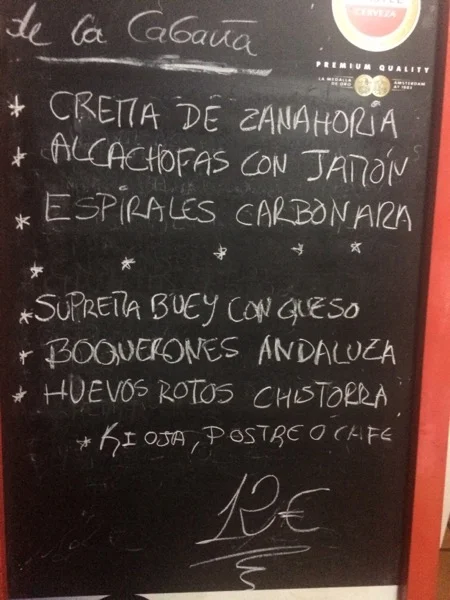 de la Cabaña
CERVEZA
PREMIUM QUALITY
LA MEDALLA
DE ORO
AMSTERDAM
AT 1883
* CREMA DE ZANAHORIA
* ALCACHOFAS CON JAMÓN
* ESPIRALES CARBONARA
* * * * *
* SUPREMA BUEY CON QUESO
* BOQUERONES ANDALUZA
* HUEVOS ROTOS CHISTORRA
* RIOJA, POSTRE O CAFE
12€